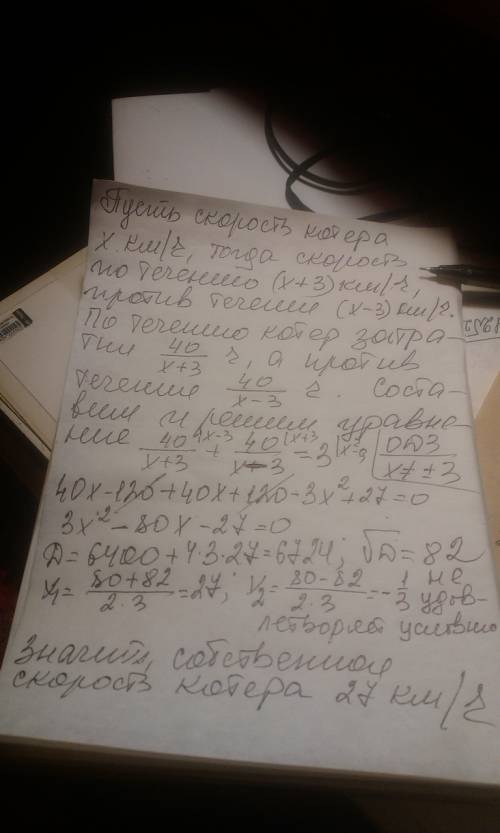 Пусть скорость катера
х км/ч, тогда скорость
по течению (х+3) км/ч,
против течени (х-3) км/ч.
По течению катер затра-
тил 40/х+3 ч, а против
течение 40/х-3 ч. Соста-
вим и решим уравне-
ние 40/х+3 |х-3 + 40/х-3 |х+3 = 3 |х²-9 ОДЗ х≠±3
40х-120+40х+120-3х²+27=0
3х²-80х-27=0
D=6400+4·3·27=6724; √D=82
х₁=80+82/2·3=27; х₂=80-82/2·3=-1/3 не
удов-
летворяет условию
Значит, собственная
скорость катера 27 км/ч